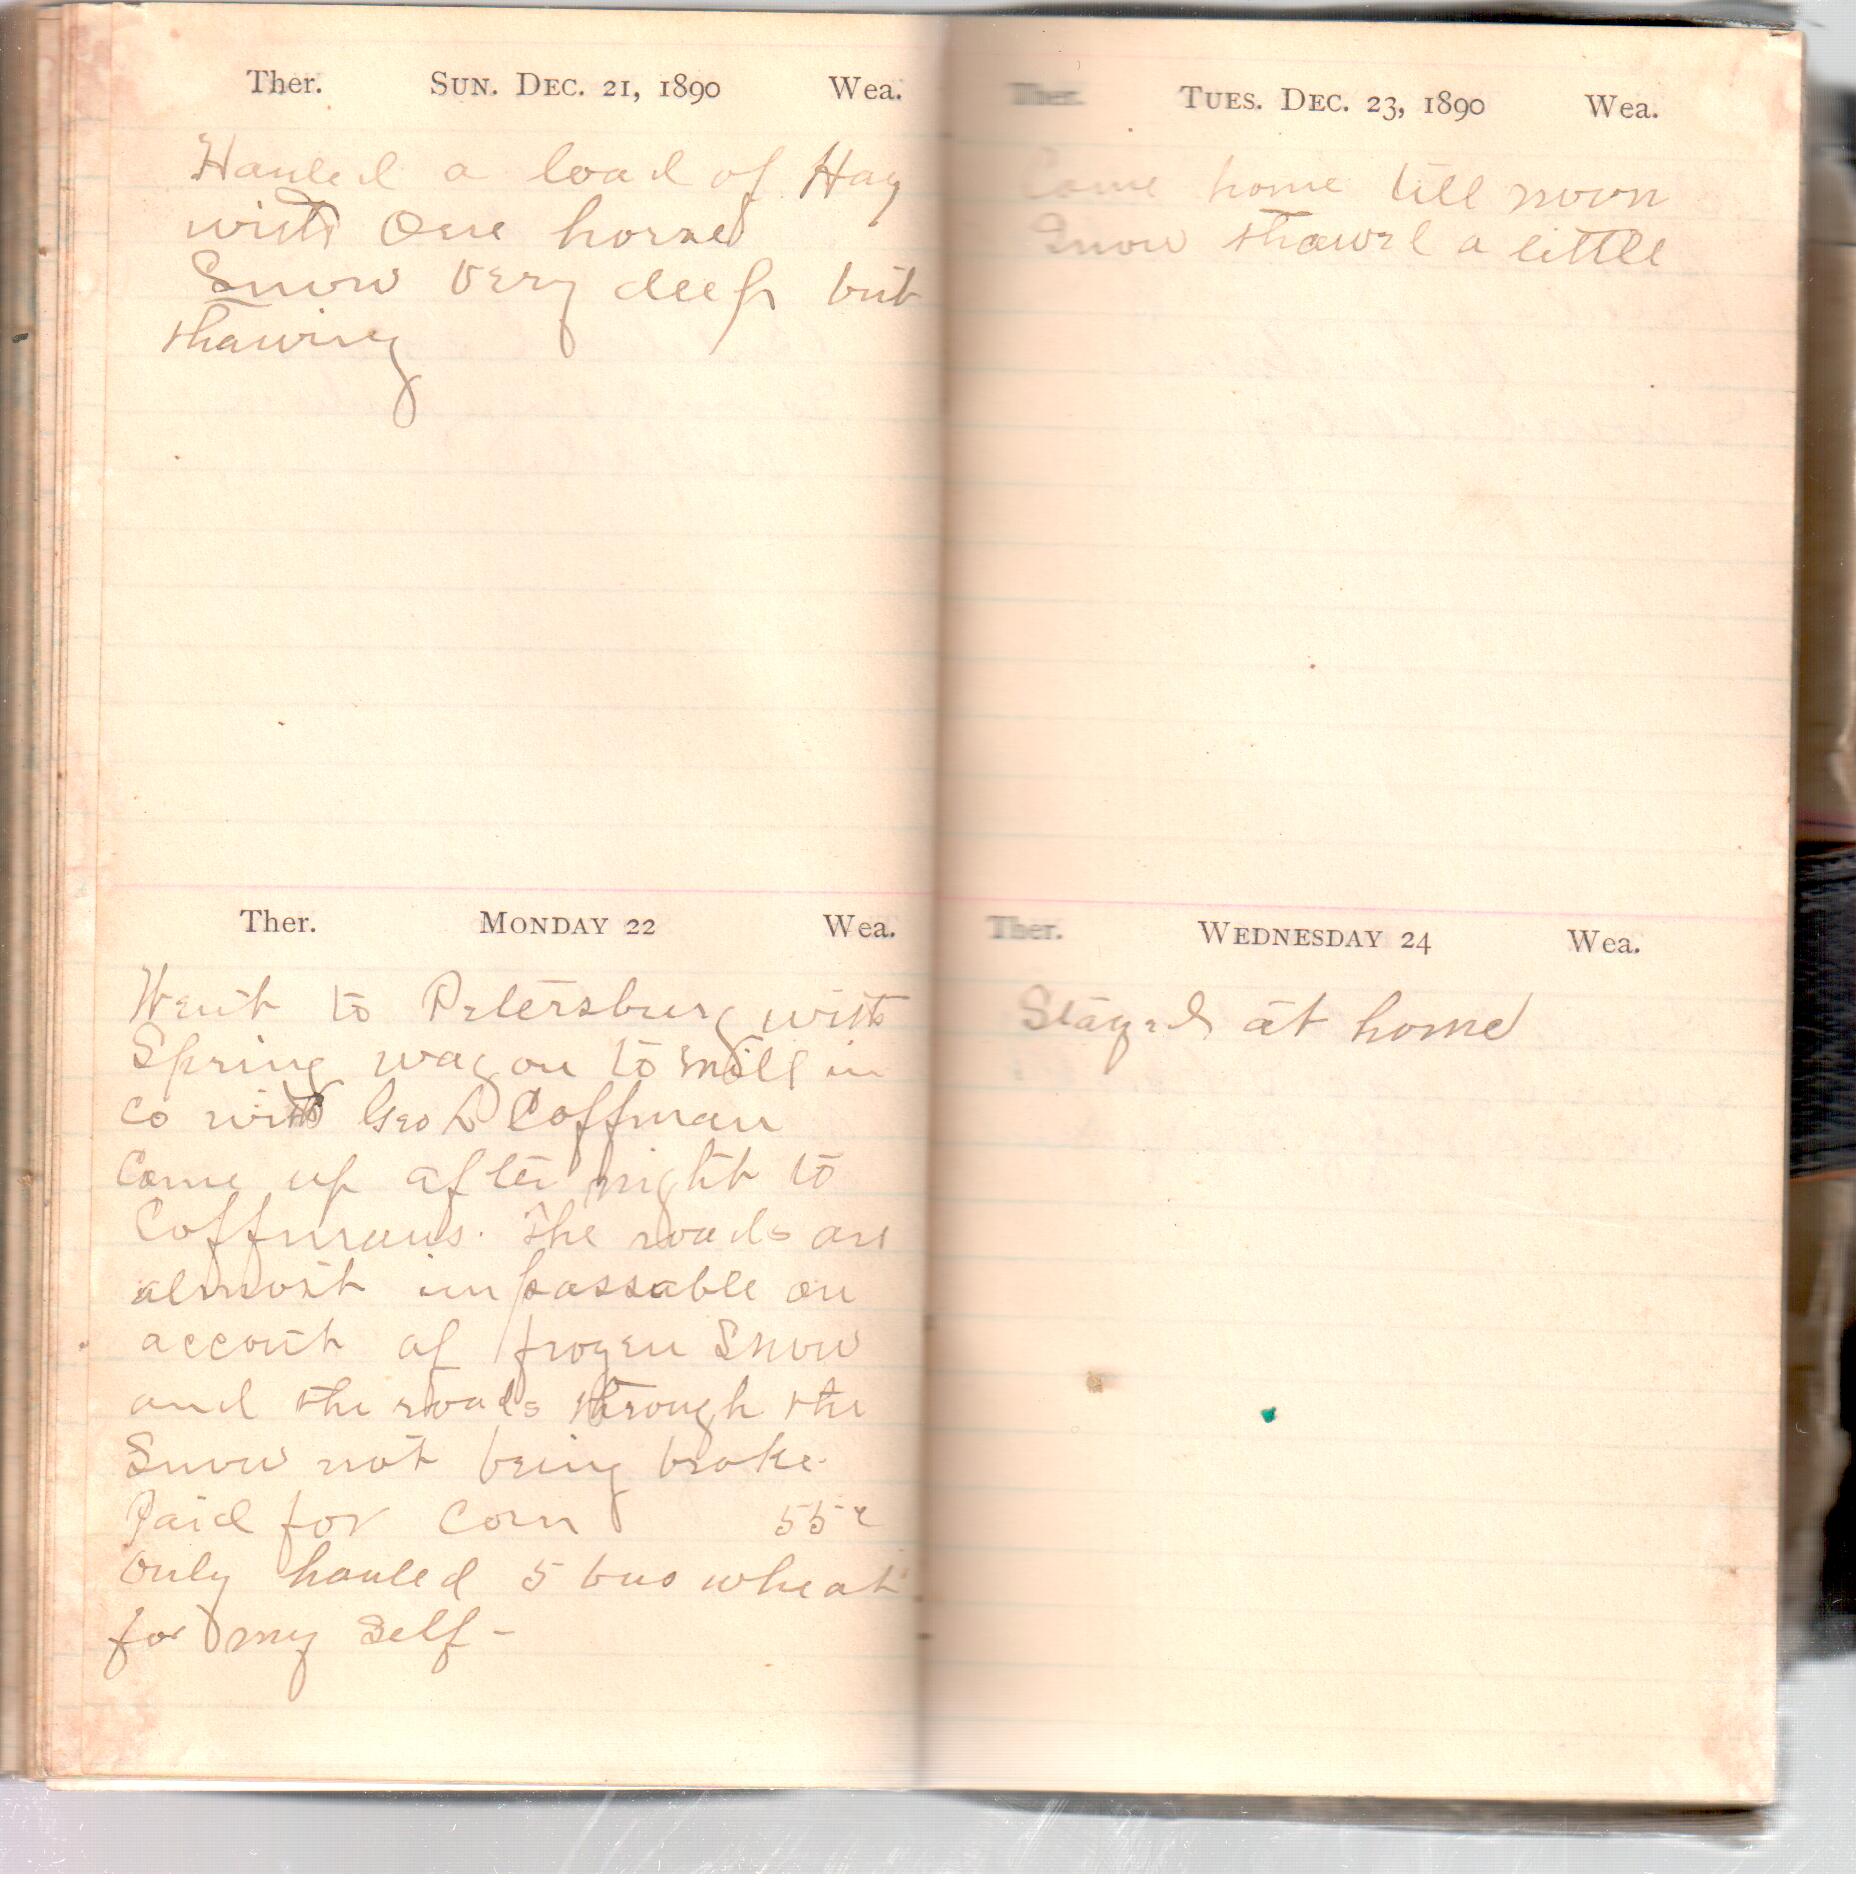 Ther. SUN. DEC. 21, 1890 Wea.
Hauled a load of Hay
with One horse
Snow very deep but
thawing
Ther. MONDAY 22 Wea.
Went to Petersburg with
Spring wagon to mill in
co with Geo D Coffman
Come up after night to
Coffmans. The roads are
almost impassable on
account of frozen Snow
and the roads through the
Snow not being broke.
Paid for Corn 55c
Only hauled 5 bus wheat
for my self -
Ther. TUES. DEC. 23, 1890 Wea.
Come home till noon
Snow thawed a little
Ther. WEDNESDAY 24 Wea.
Stayed at home